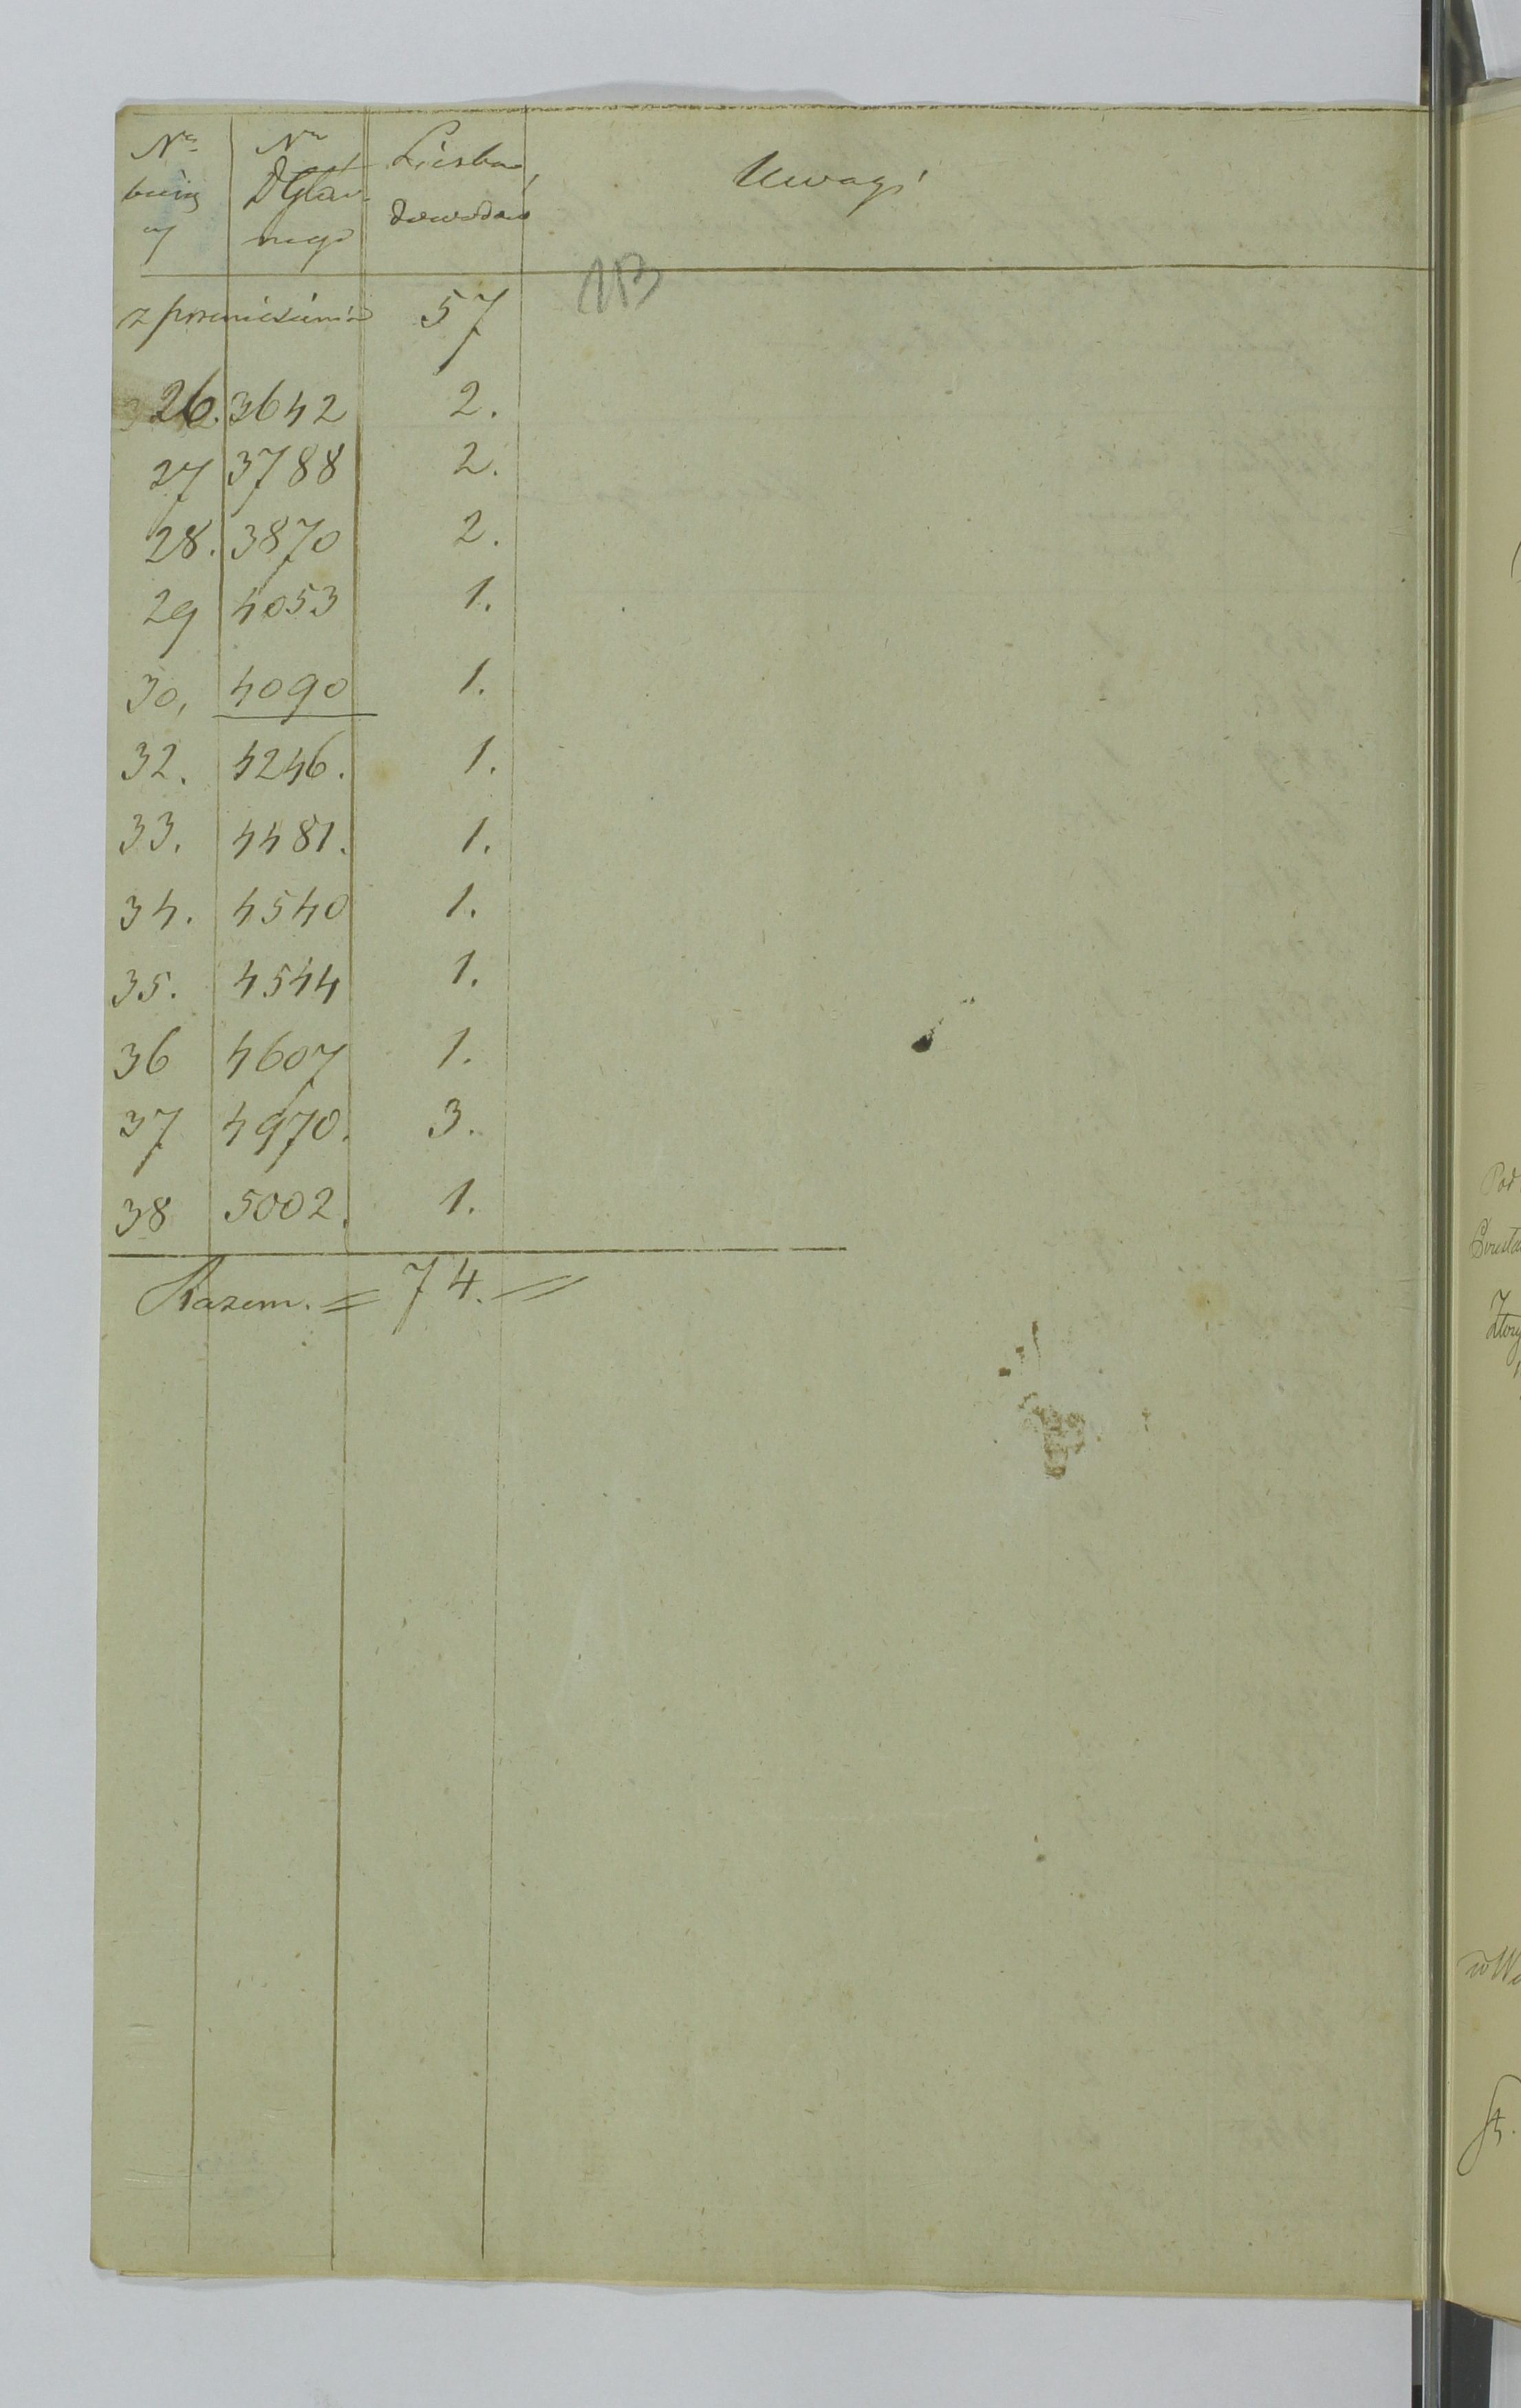 Nr bieżą cy | Nr DGłów nego | Liczba dowodów | Uwagi
z przeniesienia 57
26. 3642 2.
27 3788 2.
28. 3870 2.
29 4053 1.
30, 4090 1.
32. 4246. 1.
33. 4481. 1.
34. 4540 1.
35. 4544 1.
36 4607 1.
37 4970. 3.
38 5002. 1.
Razem. = 74. =